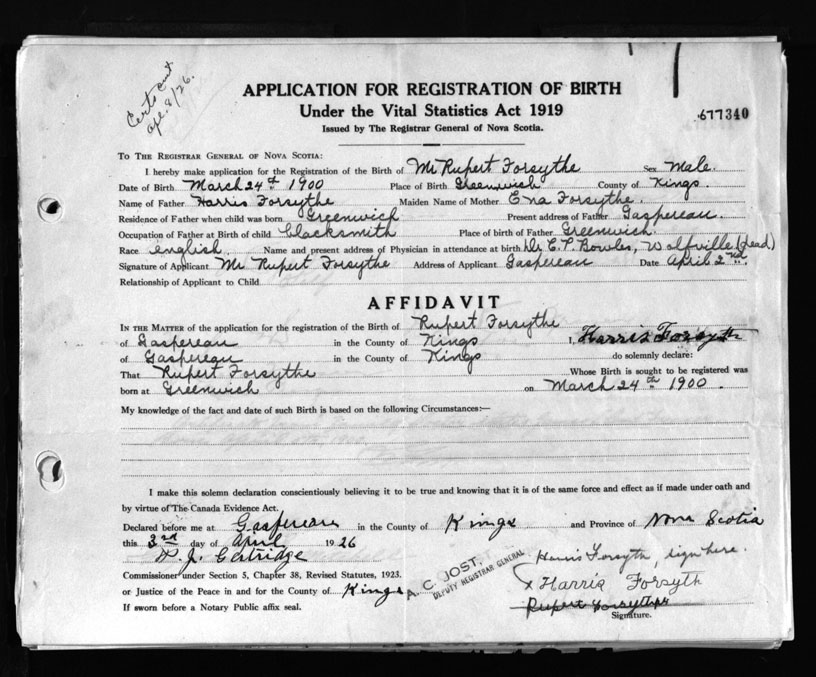 Certs cut
apl. 8/26.
APPLICATION FOR REGISTRATION OF BIRTH
Under the Vital Statistics Act 1919
Issued by The Registrar General of Nova Scotia.
677340
TO THE REGISTRAR GENERAL OF NOVA SCOTIA:
I hereby make application for the Registration of the Birth of Mr Rupert Forsythe Sex Male.
Date of Birth March 24th 1900 Place of Birth Greenwich County of Kings.
Name of Father Harris Forsythe Maiden Name of Mother Ena Forsythe.
Residence of Father when child was born Greenwich Present address of Father Gaspereau.
Occupation of Father at Birth of child Blacksmith Place of birth of Father Greenwich.
Race english. Name and present address of Physician in attendance at birth Dr E. P. Bowles, Wolfville (dead)
Signature of Applicant Mr Rupert Forsythe Address of Applicant Gaspereau Date April 2nd.
Relationship of Applicant to Child
AFFIDAVIT
IN THE MATTER of the application for the registration of the Birth of Rupert Forsythe
of Gaspereau in the County of Kings I, Harris Forsyth
of Gaspereau in the County of Kings do solemnly declare:
That Rupert Forsythe Whose Birth is sought to be registered was
born at Greenwich on March 24th 1900.
My knowledge of the fact and date of such Birth is based on the following Circumstances:—
I make this solemn declaration conscientiously believing it to be true and knowing that it is of the same force and effect as if made under oath and
by virtue of The Canada Evidence Act.
Declared before me at Gaspereau in the County of Kings and Province of Nova Scotia
this 3rd day of April 1926
J. Gertridge
Commissioner under Section 5, Chapter 38, Revised Statutes, 1923.
or Justice of the Peace in and for the County of Kings
If sworn before a Notary Public affix seal.
A. C. JOST,
DEPUTY REGISTRAR GENERAL
Harris Forsyth, sign here.
x Harris Forsyth
Rupert Forsythe
Signature.